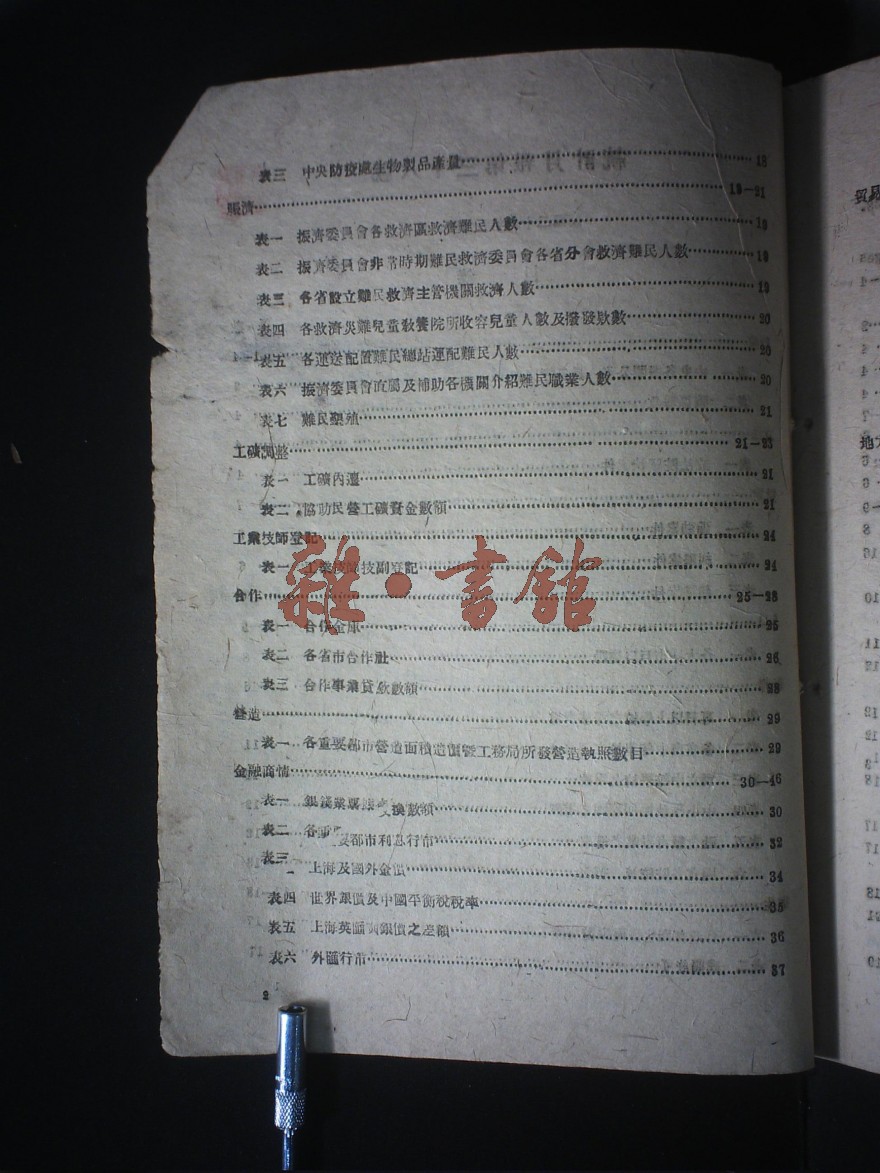 表三 中央防疫處生物製品產量 18
賑濟 19—21
表一 振濟委員會各救濟區救濟難民人數 19
表二 振濟委員會非常時期難民救濟委員會各省分會救濟難民人數 19
表三 各省設立難民救濟主管機關救濟人數 19
表四 各救濟災難兒童教養院所收容兒童人數及撥發欵數 20
表五 各運送配置難民總站運配難民人數 20
表六 振濟委員會直屬及補助各機關介紹難民職業人數 20
表七 難民墾殖 21
工礦調整 21—23
表一 工礦內遷 21
表二 協助民營工礦資金數額 21
工業技師登記 24
表一 工業技師技副登記 24
合作 25—28
表一 合作金庫 25
表二 各省市合作社 26
表三 合作事業貸欵數額 28
營造 29
表一 各重要都市營造面積造價暨工務局所發營造執照數目 29
金融商情 30—46
表一 銀錢業票據交換數額 30
表二 各重要都市利息行市 32
表三 上海及國外金價 34
表四 世界銀價及中國平衡稅稅率 35
表五 上海英國銀價之差額 36
表六 外匯行市 37
2
雜·書館